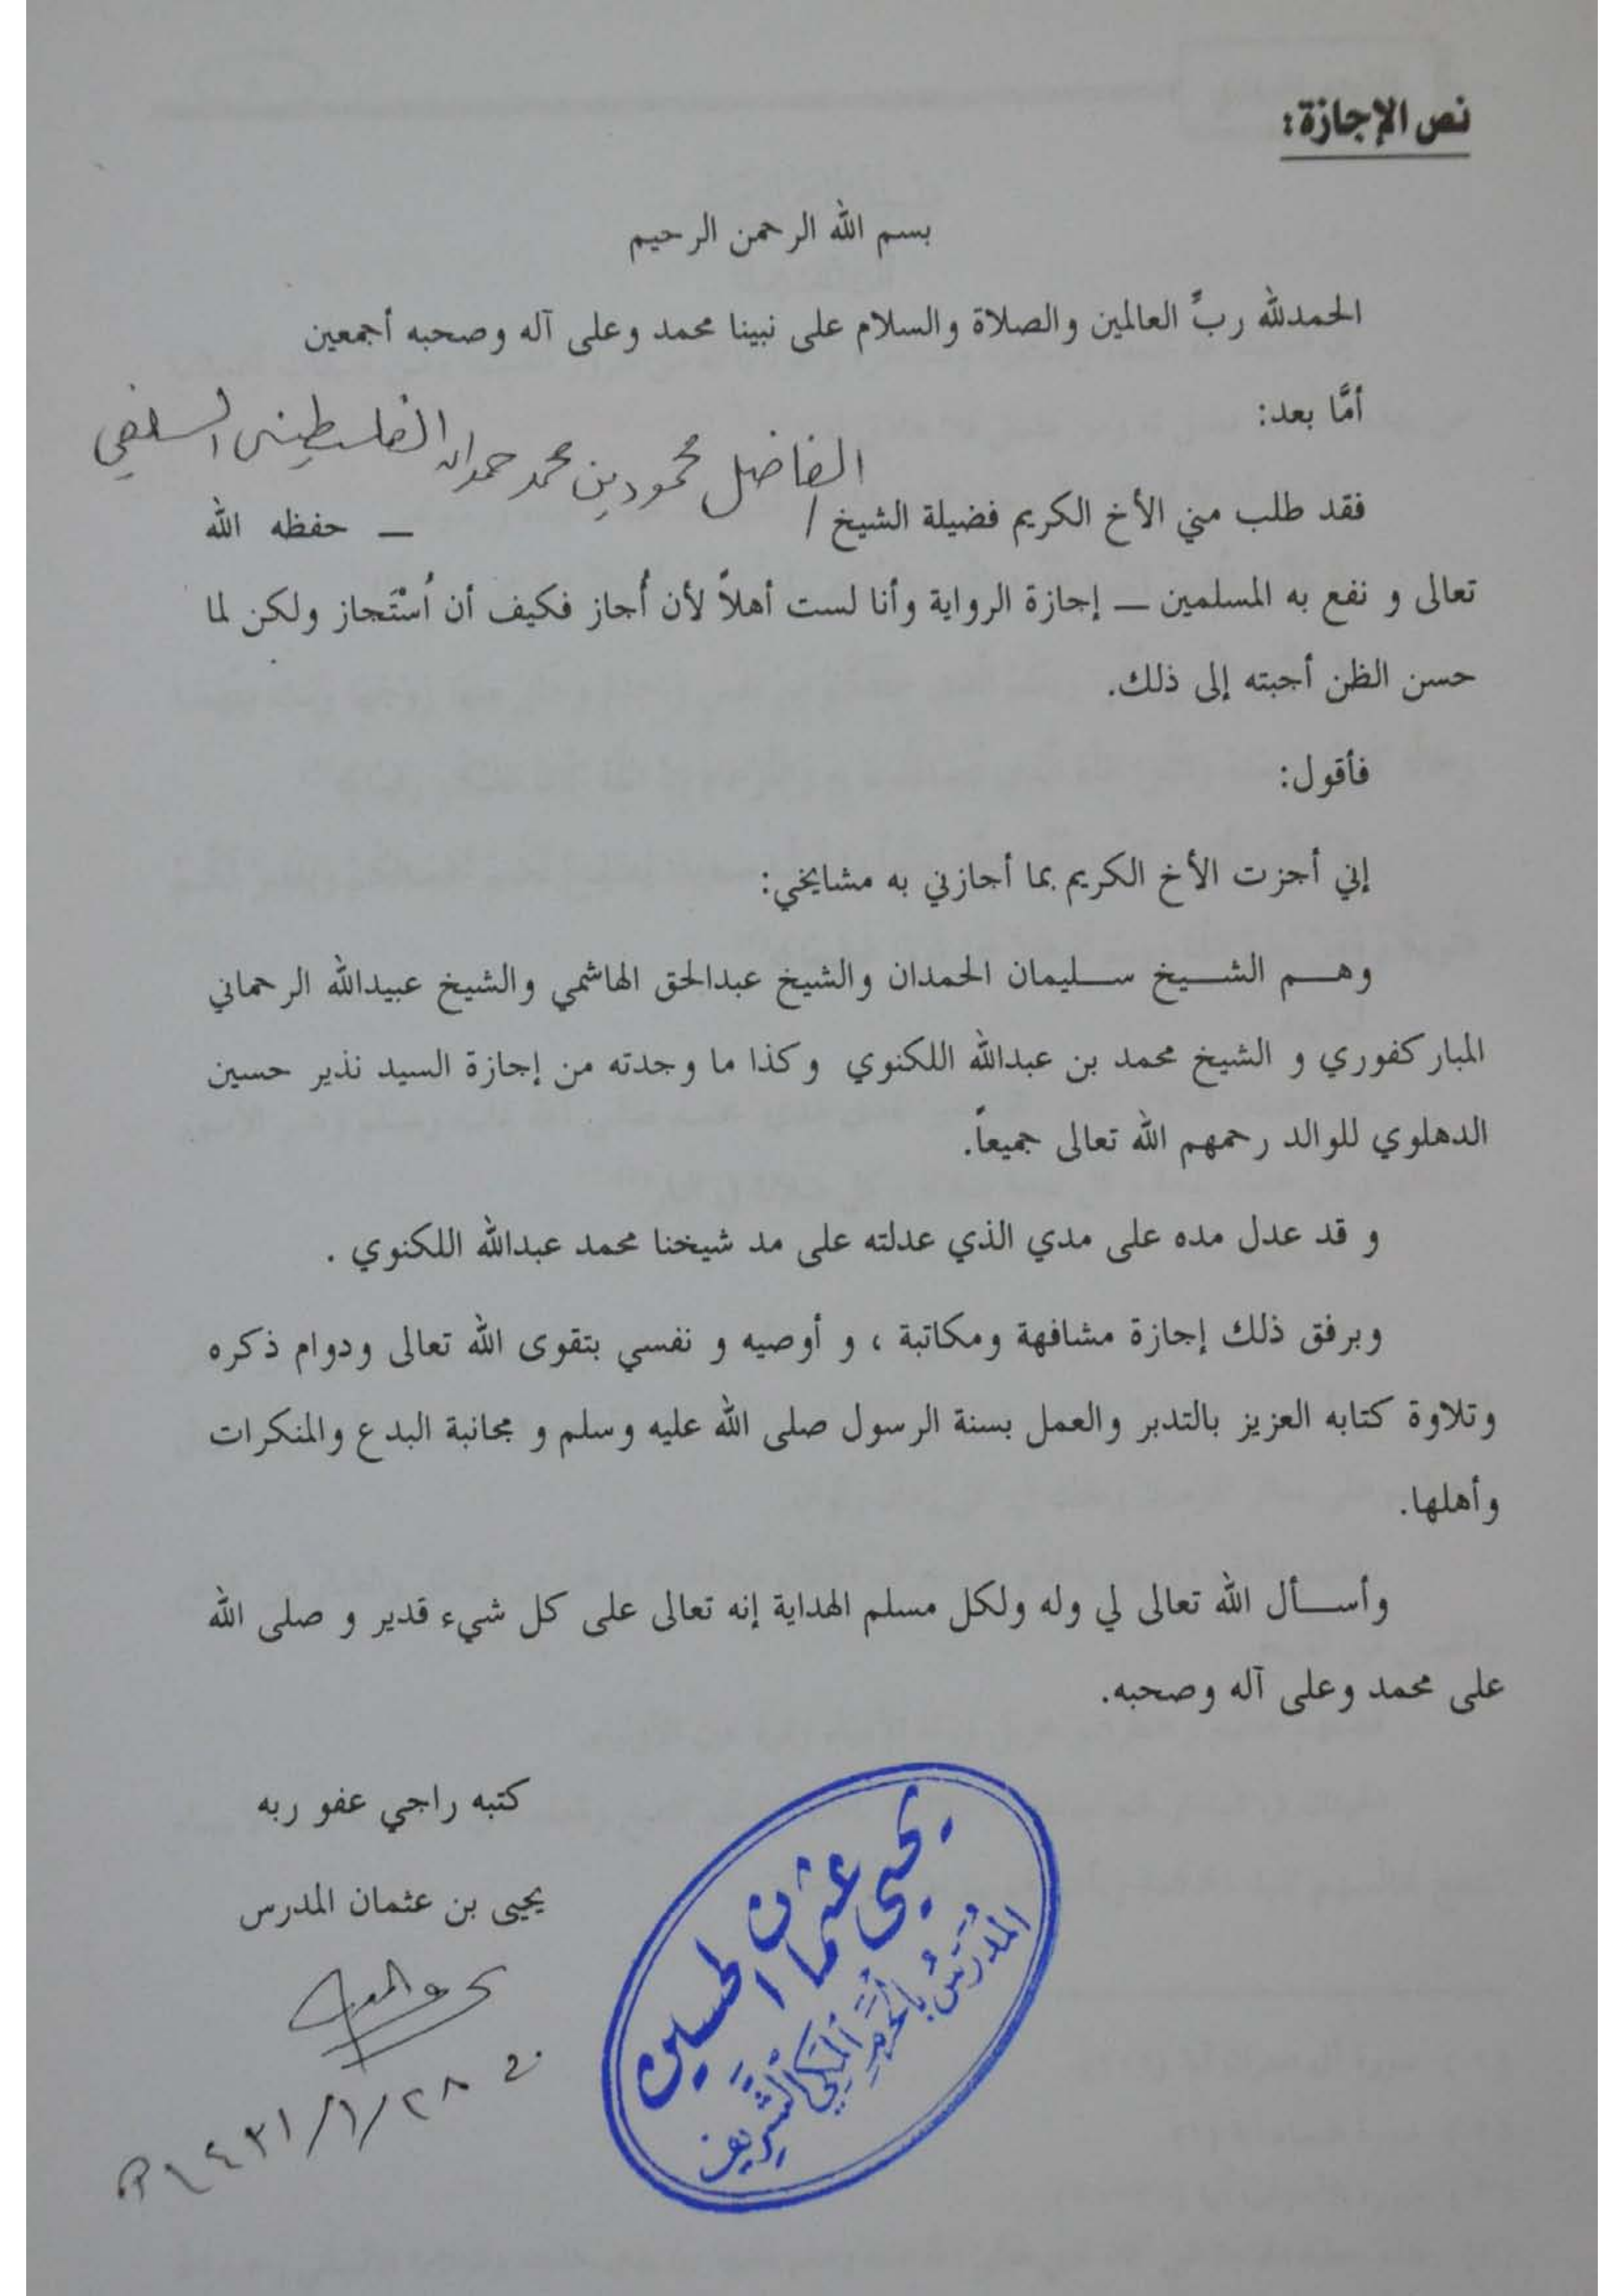 نص الإجازة:
بسم الله الرحمن الرحيم
الحمدلله ربِّ العالمين والصلاة والسلام على نبينا محمد وعلى آله وصحبه أجمعين
أمَّا بعد:
الفاضل محمود بن محمد حمدان الفلسطيني السلفي
فقد طلب مني الأخ الكريم فضيلة الشيخ / — حفظه الله
تعالى و نفع به المسلمين — إجازة الرواية وأنا لست أهلاً لأن أُجاز فكيف أن اُسْتَجاز ولكن لما
حسن الظن أجبته إلى ذلك.
فأقول:
إني أجزت الأخ الكريم بما أجازني به مشايخي:
وهم الشيخ سليمان الحمدان والشيخ عبدالحق الهاشمي والشيخ عبيدالله الرحماني
المباركفوري و الشيخ محمد بن عبدالله اللكنوي وكذا ما وجدته من إجازة السيد نذير حسين
الدهلوي للوالد رحمهم الله تعالى جميعاً.
و قد عدل مده على مدي الذي عدلته على مد شيخنا محمد عبدالله اللكنوي .
وبرفق ذلك إجازة مشافهة ومكاتبة ، و أوصيه و نفسي بتقوى الله تعالى ودوام ذكره
وتلاوة كتابه العزيز بالتدبر والعمل بسنة الرسول صلى الله عليه وسلم و مجانبة البدع والمنكرات
وأهلها.
وأسأل الله تعالى لي وله ولكل مسلم الهداية إنه تعالى على كل شيء قدير و صلى الله
على محمد وعلى آله وصحبه.
كتبه راجي عفو ربه
يحيى بن عثمان المدرس
في ٢٨/١/١٤٣١ه
يحيى عثمان الحسين
المُدَرِّسُ بِالحَرَمِ المَكِّي الشَّرِيف